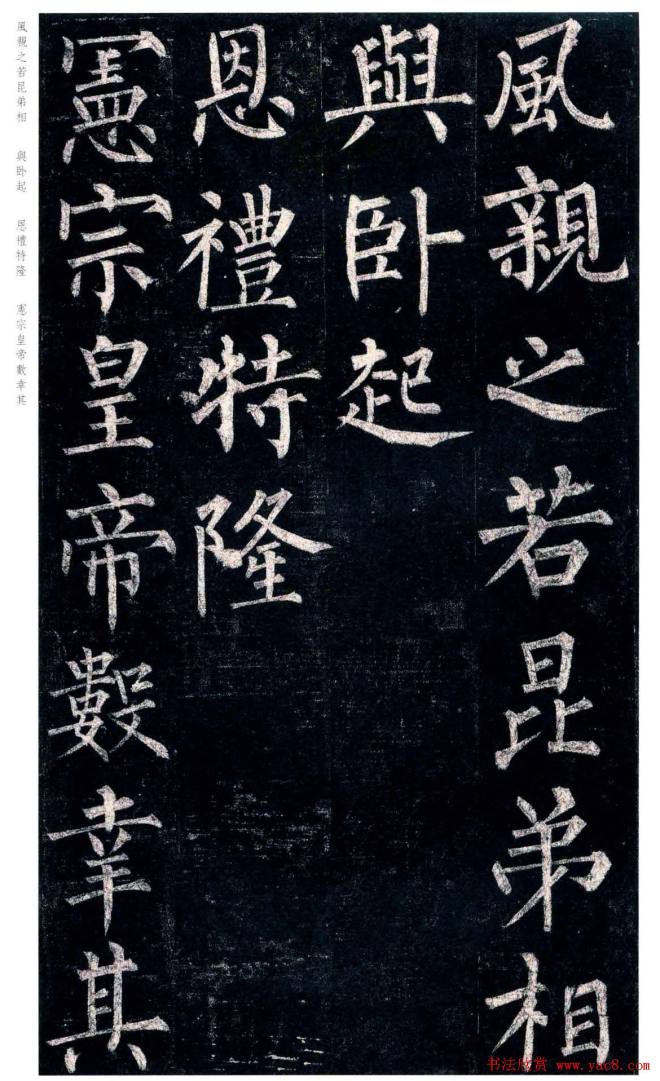 風親之若昆弟相
與卧起
恩禮特隆
憲宗皇帝數幸其
風親之若昆弟相 與卧起 恩禮特隆 憲宗皇帝數幸其
书法欣赏 www.yac8.com